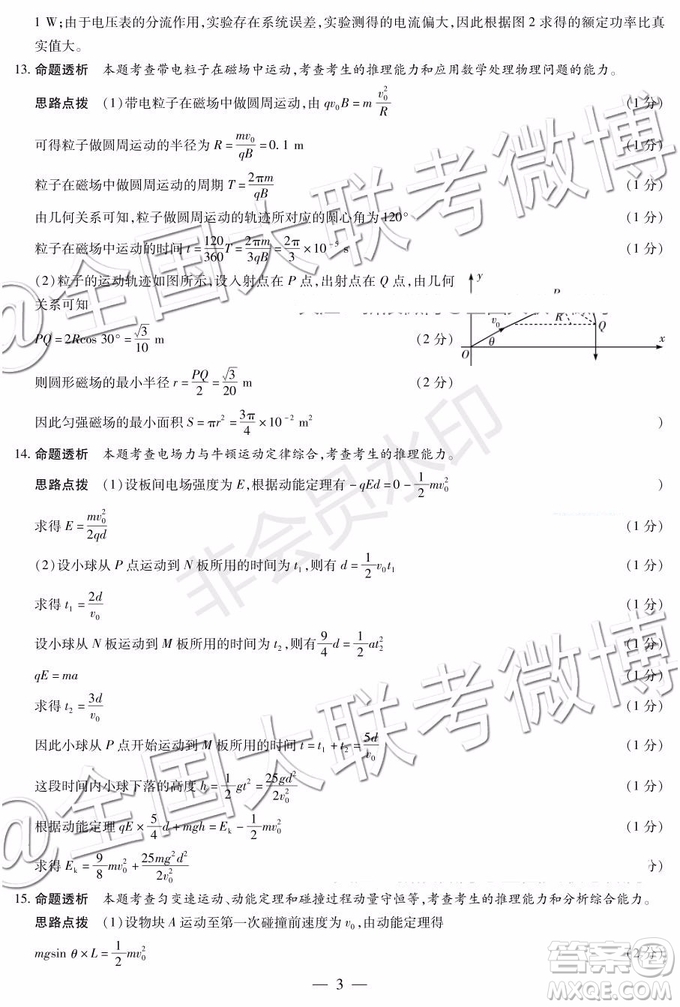 1 W;由于电压表的分流作用,实验存在系统误差,实验测得的电流偏大,因此根据图 2 求得的额定功率比真
实值大。
13. 命题透析 本题考查带电粒子在磁场中运动,考查考生的推理能力和应用数学处理物理问题的能力。
思路点拨 (1)带电粒子在磁场中做圆周运动,由 qv₀B = m v₀²/R (1 分)
可得粒子做圆周运动的半径为 R = mv₀/qB = 0.1 m (1 分)
粒子在磁场中做圆周运动的周期 T = 2πm/qB (1 分)
由几何关系可知,粒子做圆周运动的轨迹所对应的圆心角为 120° (1 分)
粒子在磁场中运动的时间 t = 120/360 T = 2πm/3qB = 2π/3 × 10⁻⁵ s (1 分)
(2)粒子的运动轨迹如图所示,设入射点在 P 点,出射点在 Q 点,由几何
关系可知
PQ = 2Rcos 30° = √3/10 m (2 分)
则圆形磁场的最小半径 r = PQ/2 = √3/20 m (2 分)
y
R
Q
v₀
θ
O
x
因此匀强磁场的最小面积 S = πr² = 3π/4 × 10⁻² m² )
14. 命题透析 本题考查电场力与牛顿运动定律综合,考查考生的推理能力。
思路点拨 (1)设板间电场强度为 E,根据动能定理有 - qEd = 0 - 1/2 mv₀² )
求得 E = mv₀²/2qd (1 分)
(2)设小球从 P 点运动到 N 板所用的时间为 t₁,则有 d = 1/2 v₀t₁ (1 分)
求得 t₁ = 2d/v₀ (1 分)
设小球从 N 板运动到 M 板所用的时间为 t₂,则有 9/4 d = 1/2 at₂² (1 分)
qE = ma (1 分)
求得 t₂ = 3d/v₀ (1 分)
因此小球从 P 点开始运动到 M 板所用的时间 t = t₁ + t₂ = 5d/v₀ (1 分)
这段时间内小球下落的高度 h = 1/2 gt² = 25gd²/2v₀² (1 分)
根据动能定理 qE × 5/4 d + mgh = Eₖ - 1/2 mv₀² (1 分)
求得 Eₖ = 9/8 mv₀² + 25mg²d²/2v₀²
15. 命题透析 本题考查匀变速运动、动能定理和碰撞过程动量守恒等,考查考生的推理能力和分析综合能力。
思路点拨 (1)设物块 A 运动至第一次碰撞前速度为 v₀,由动能定理得
mgsin θ × L = 1/2 mv₀² (2 分)
— 3 —
@全国大联考微博
@全国大联考微博
非会员水印
作业帮答案